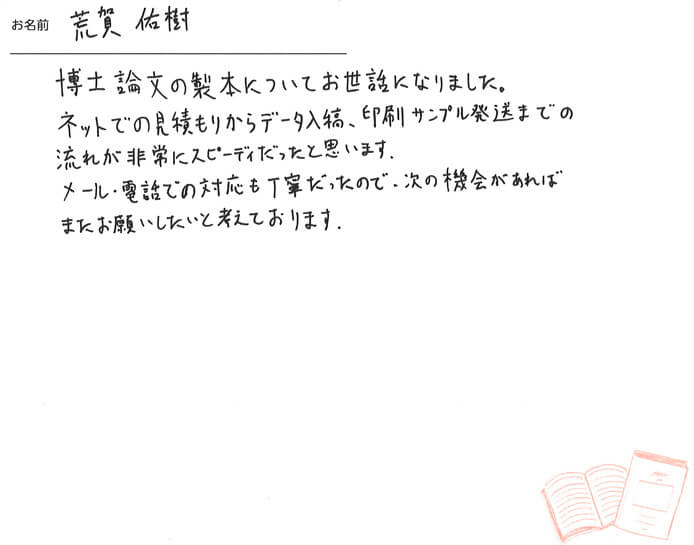 お名前 荒賀 佑樹
博士論文の製本についてお世話になりました。
ネットでの見積もりからデータ入稿、印刷サンプル発送までの
流れが非常にスピーディだったと思います.
メール・電話での対応も丁寧だったので、次の機会があれば
またお願いしたいと考えております.